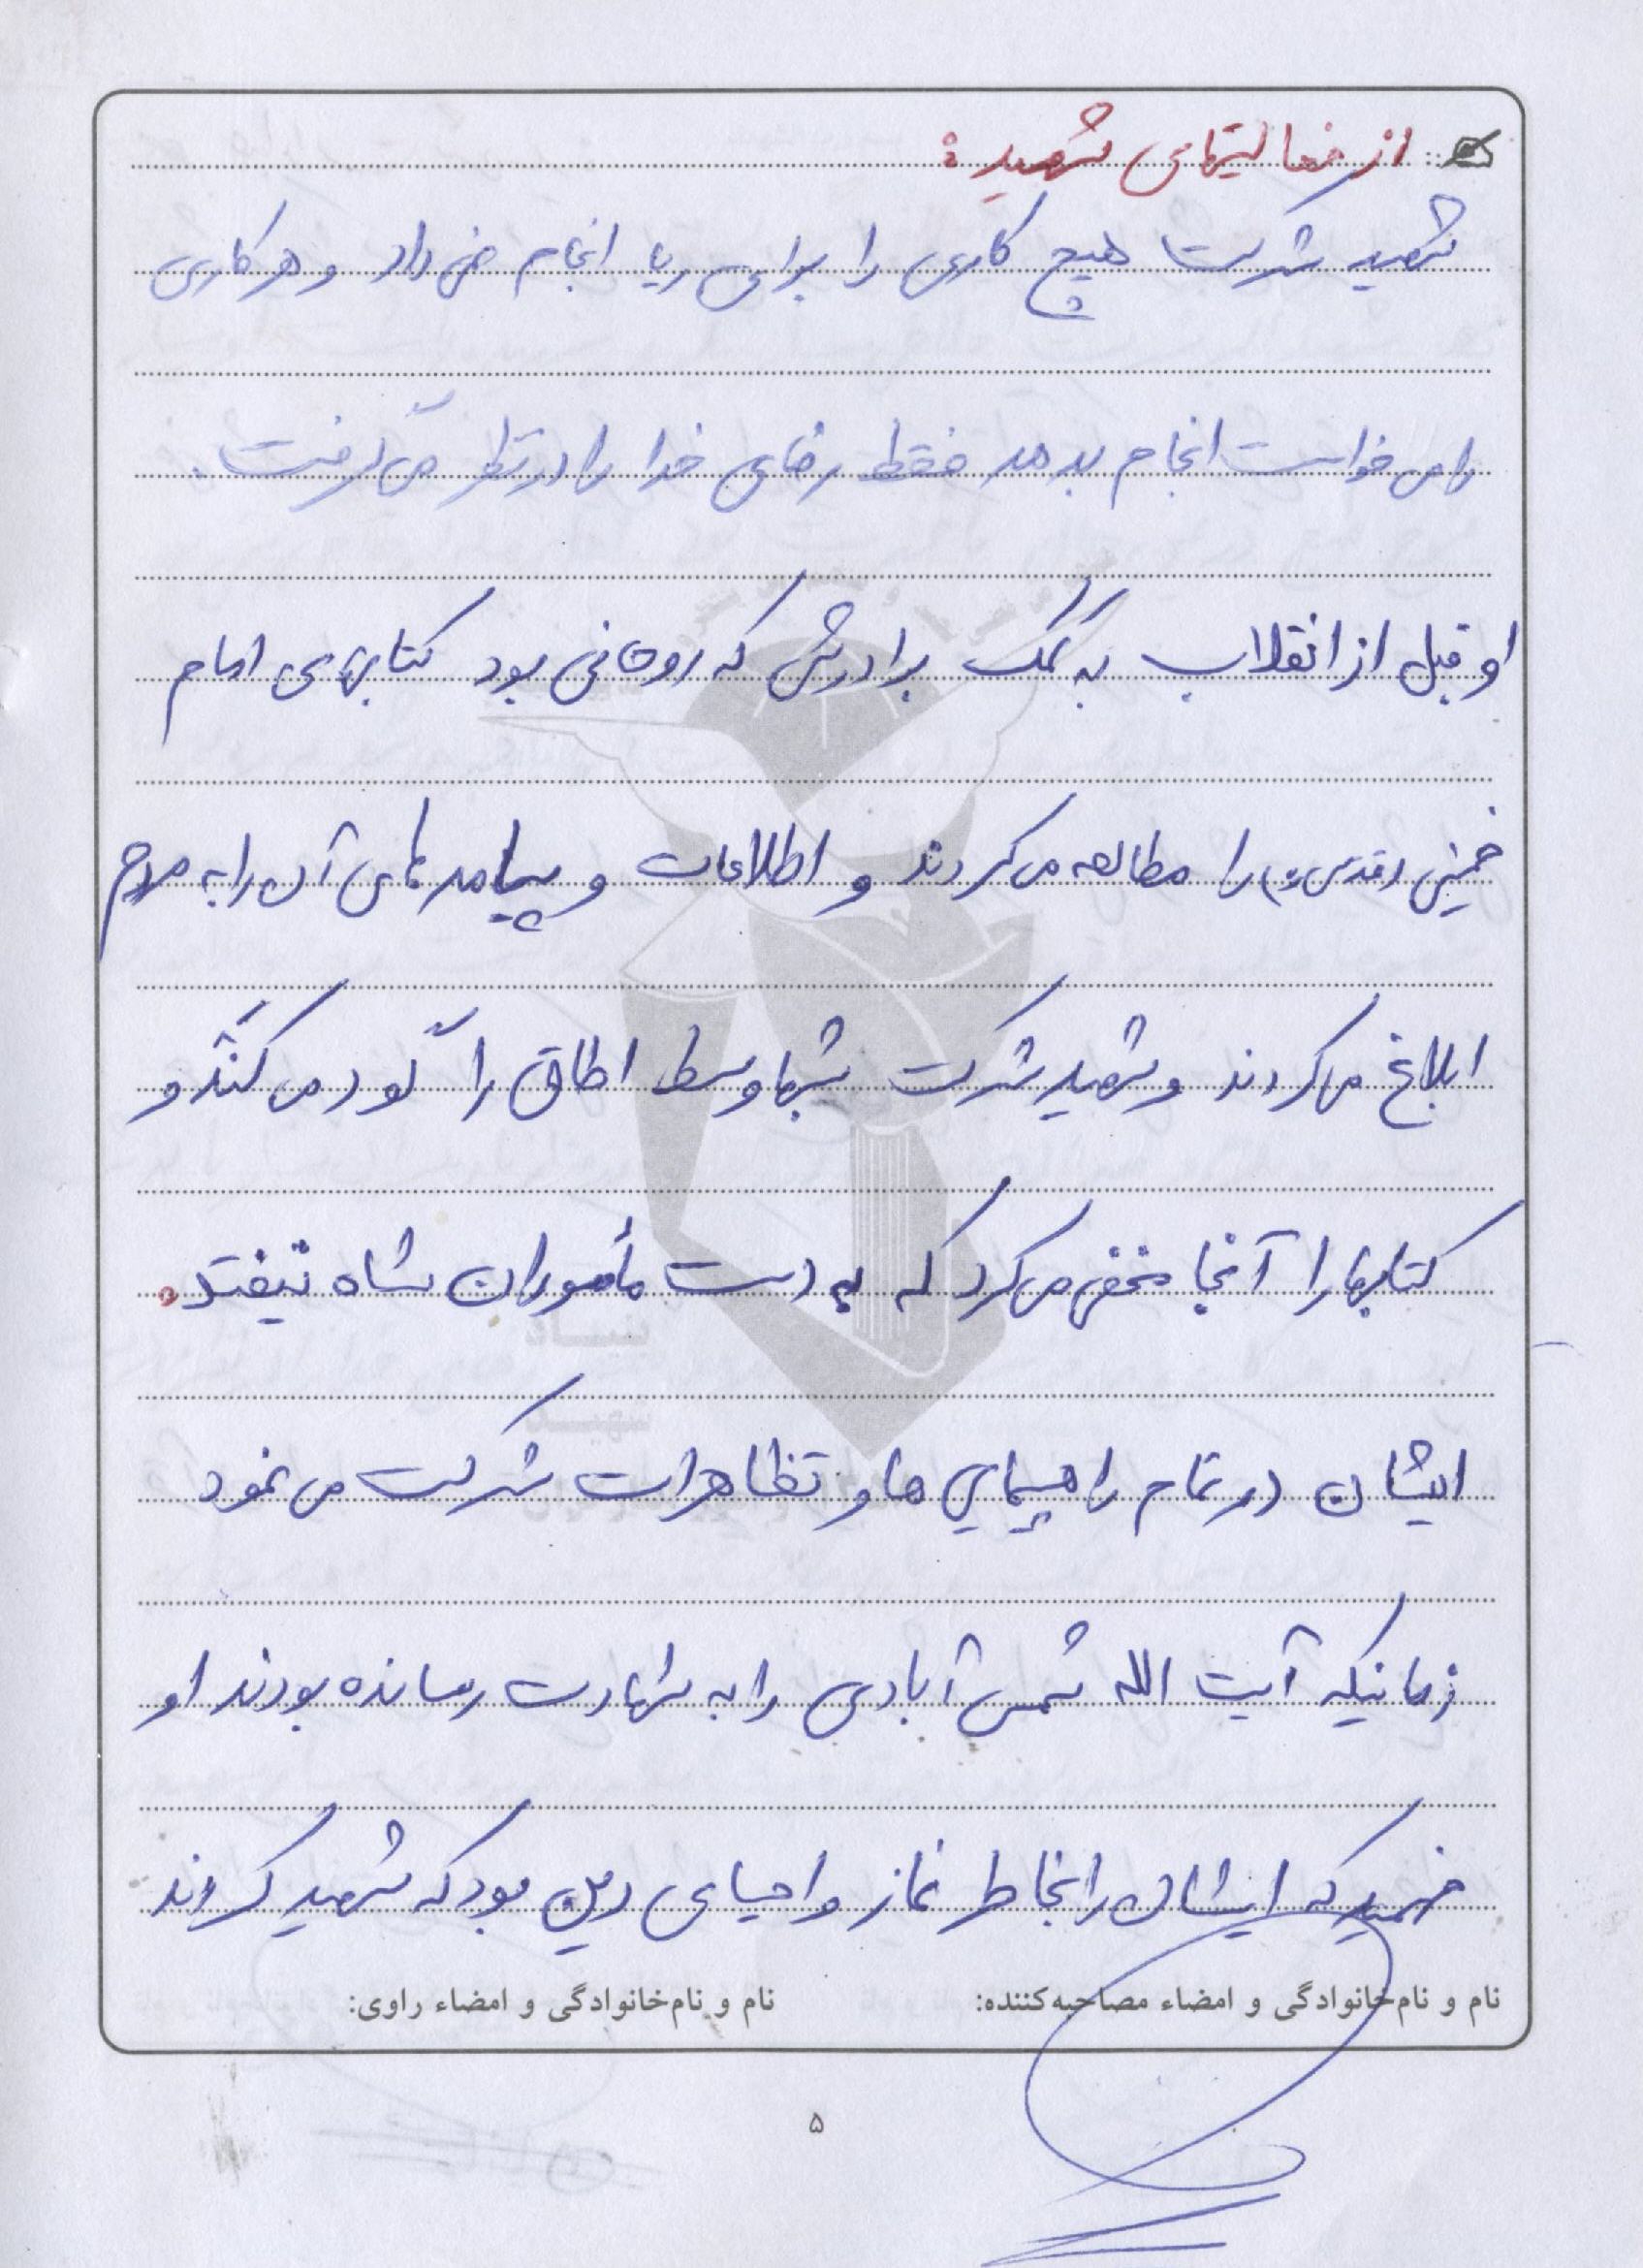 از فعالیتهای شهید:
شهید شرکت هیچ کاری را برای ریا انجام نمی داد و هر کاری
را می خواست انجام بدهد فقط رضای خدا را در نظر می گرفت.
او قبل از انقلاب به کمک برادرش که روحانی بود کتابهای امام
خمینی (قدس ره) را مطالعه می کردند و اطلاعات و پیامدهای آن را به مردم
ابلاغ می کردند و شهید شرکت شبها وسط اطاق را گود می کند و
کتابها را آنجا مخفی می کرد که به دست مأموران شاه نیفتد.
ایشان در تمام راهپیمایی ها و تظاهرات شرکت می نمود
زمانیکه آیت الله شمس آبادی را به شهادت رسانده بودند او
فهمید که ایشان را بخاطر نماز و احیای دین بود که شهید کردند
نام و نام‌خانوادگی و امضاء مصاحبه‌کننده: نام و نام‌خانوادگی و امضاء راوی:
۵